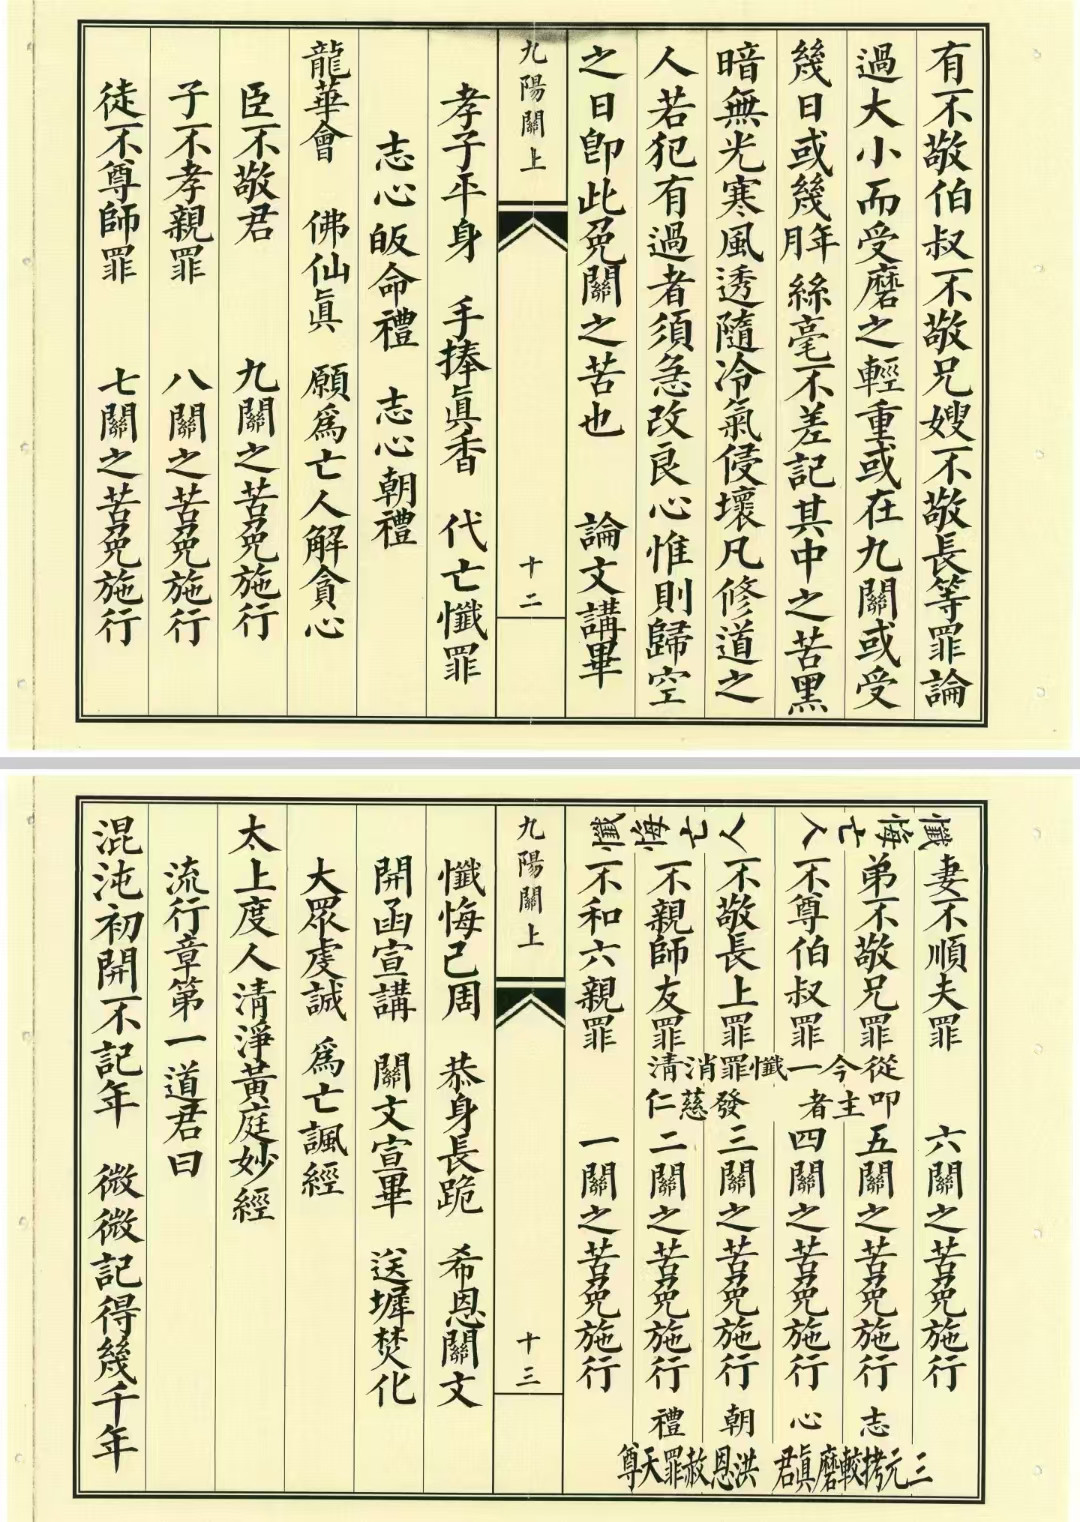 有不敬伯叔不敬兄嫂不敬長等罪論
過大小而受磨之輕重或在九關或受
幾日或幾月年絲毫不差記其中之苦黑
暗無光寒風透隨冷氣侵壞凡修道之
人若犯有過者須急改良心惟則歸空
之日卽此免關之苦也 論文講畢
九陽關上 十二
孝子平身 手捧眞香 代亡懺罪
志心皈命禮 志心朝禮
龍華會 佛仙眞 願爲亡人解貪心
臣不敬君 九關之苦免施行
子不孝親罪 八關之苦免施行
徒不尊師罪 七關之苦免施行
懺悔亡人
人亡悔懺
妻不順夫罪 六關之苦免施行
弟不敬兄罪 五關之苦免施行
不尊伯叔罪 四關之苦免施行
不敬長上罪 三關之苦免施行
不親師友罪 二關之苦免施行
不和六親罪 一關之苦免施行
從今一懺罪消清
叩主者 發慈仁
志心朝禮
三元拷較磨眞君 洪恩赦罪天尊
九陽關上 十三
懺悔已周 恭身長跪 希恩關文
開函宣講 關文宣畢 送墀焚化
大眾虔誠 爲亡諷經
太上度人清淨黃庭妙經
流行章第一道君曰
混沌初開不記年 微微記得幾千年